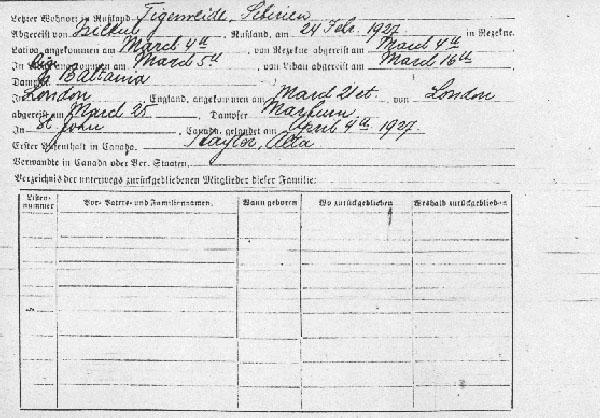 Letzter Wohnort in Rußland Tigerweide, Siberien
Abgereist von , Rußland, am 24 Febr. 1927 in Rezekne,
Latvia angekommen am March 4th , von Rezekne abgereist am March 4th
In Riga angekommen am March 5th , von Libau abgereist am March 16th
Dampfer Baltania
In London , England, angekommen am March 21st. von London
abgereist am March 25 Dampfer
In St John , Canada, gelandet am April 4th 1927.
Erster Aufenthalt in Canada. Nayton, Alta
Verwandte in Canada oder Ver. Staaten,
Verzeichnis der unterwegs zurückgebliebenen Mitglieder dieser Familie:
Listen-nummer Vor- Vaters- und Familiennamen. Wann geboren Wo zurückgeblieben Weshalb zurückgeblieben